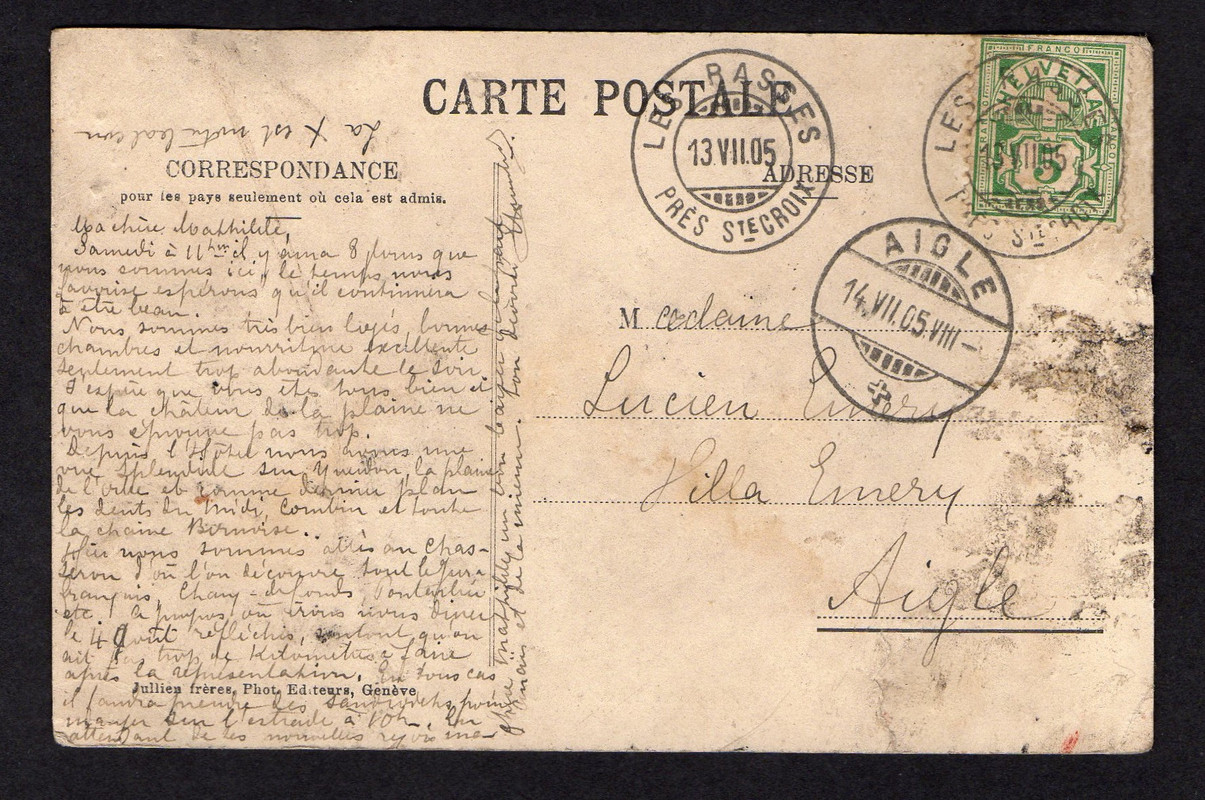 CARTE POSTALE
La X est notre balcon
CORRESPONDANCE
pour les pays seulement où cela est admis.
ADRESSE
LES RASSES
13.VII.05
PRÈS STE CROIX
LES
13.VII.05
PRÈS STE CROIX
FRANCO
HELVETIA
5
AIGLE
14.VII.05.VIII–
Ma chère Mathilde,
Samedi à 11h il y aura 8 jours que
nous sommes ici, le temps nous
favorise espérons qu'il continuera
à être beau.
Nous sommes très bien logés, bonnes
chambres et nourriture excellente
seulement trop abondante le soir.
J'espère que vous êtes tous bien et
que la chaleur de la plaine ne
vous éprouve pas trop.
Depuis l'Hôtel nous avons une
vue splendide sur Yverdon, la plaine
de l'Orbe et comme dernier plan
les dents du Midi, Combin et toute
la chaîne Bernoise.
Hier nous sommes allés au Chas-
seron d'où l'on découvre tout le Jura
français, Chaux-de-fonds, Pontarlier
etc. A propos où irons nous dîner
le 4 Août réfléchis, surtout qu'on
ait pas trop de kilomètres à faire
après la représentation. En tous cas
il faudra prendre des sandwichs pour
manger sur l'estrade à 10h. En
attendant de tes nouvelles reçois ma
chère Mathilde un bon baiser
amis et de la mienne. ton
Jullien frères, Phot. Editeurs, Genève
Madame
Lucien Emery
Villa Emery
Aigle